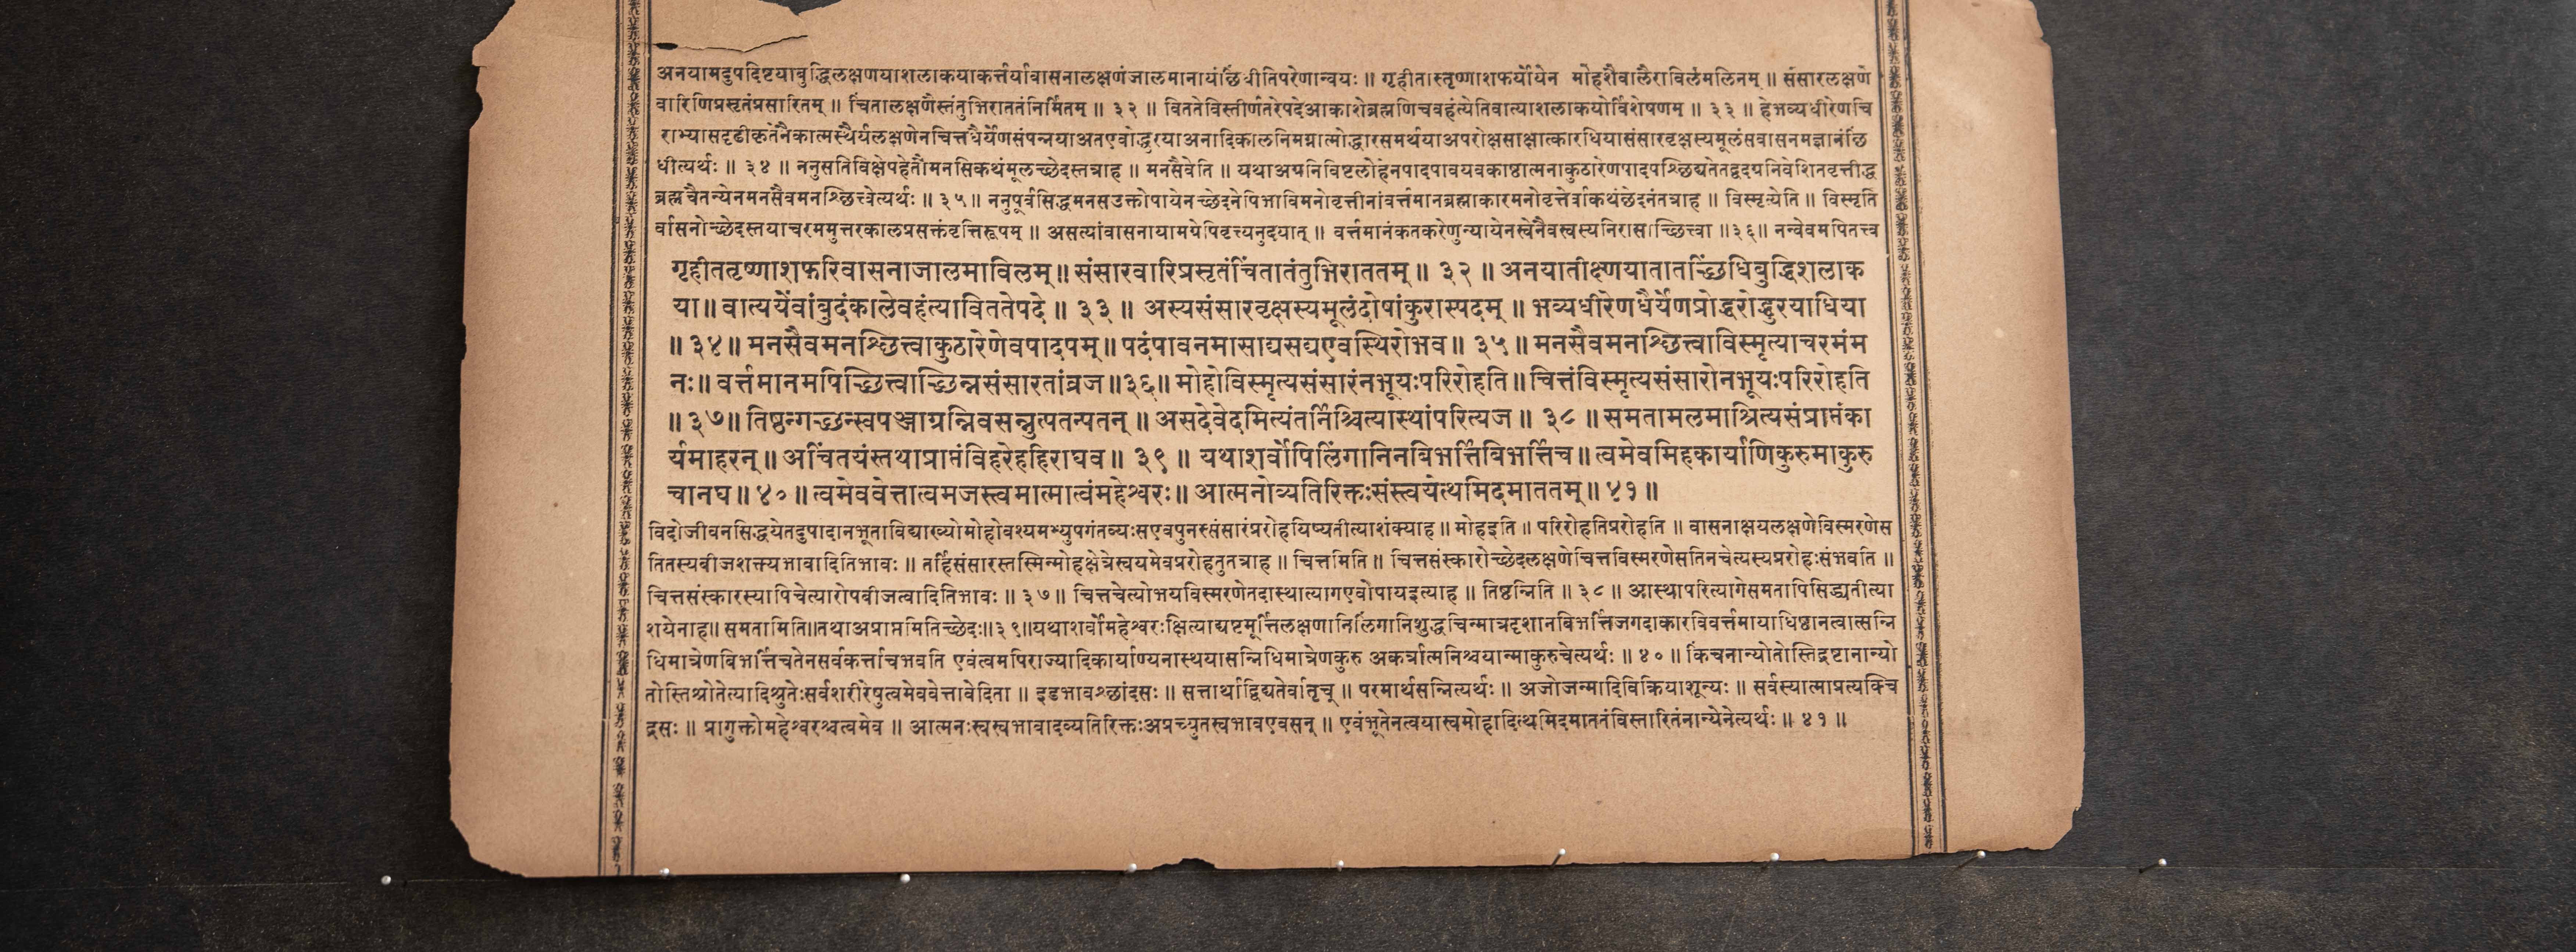 अनयामदुपदिष्टयाबुद्धिलक्षणयाशलाकयाकर्त्तर्यावासनालक्षणंजालमानायंछिंधीतिपरेणान्वयः ॥ गृहीतास्तृष्णाशफर्योयेन मोहशैवालैराविलंमलिनम् ॥ संसारलक्षणे
वारिणिप्रसृतंप्रसारितम् ॥ चिंतालक्षणैस्तंतुभिराततंनिर्मितम् ॥ ३२ ॥ विततेविस्तीर्णतरेपदेआकाशेब्रह्मणिचवहंत्येतिवात्याशलाकयोर्विशेषणम् ॥ ३३ ॥ हेभव्यधीरेणचि
राभ्यासदृढीकृतेनैकात्मस्थैर्यलक्षणेनचित्तधैर्येणसंपन्नयाअतएवोद्धुरयाअनादिकालनिमग्नात्मोद्धारसमर्थयाअपरोक्षसाक्षात्कारधियासंसारवृक्षस्यमूलंसवासनमज्ञानंछिं
धीत्यर्थः ॥ ३४ ॥ ननुसतिविक्षेपहेतौमनसिकथंमूलच्छेदस्तत्राह ॥ मनसैवेति ॥ यथाअग्रनिविष्टलोहेनपादपावयवकाष्ठात्मनाकुठारेणपादपश्छिद्यतेतद्वदग्रनिवेशिनवृत्तीद्ध
ब्रह्मचैतन्येनमनसैवमनश्छित्त्वेत्यर्थः ॥ ३५ ॥ ननुपूर्वसिद्धमनसउक्तोपायेनच्छेदनेपिभाविमनोवृत्तीनांवर्त्तमानब्रह्माकारमनोवृत्तेर्वाकथंछेदनंतत्राह ॥ विस्मृत्येति ॥ विस्मृति
र्वासनोच्छेदस्तयाचरममुत्तरकालप्रसक्तंवृत्तिरूपम् ॥ असत्यांवासनायामग्रेपिवृत्त्यनुदयात् ॥ वर्त्तमानंकतकरेणुन्यायेनस्वेनैवस्वस्यनिरासाच्छित्त्वा ॥३६॥ नन्वेवमपितत्त्व
गृहीततृष्णाशफरिवासनाजालमाविलम्॥ संसारवारिप्रसृतंचिंतातंतुभिराततम् ॥ ३२ ॥ अनयातीक्ष्णयातातच्छिंधिबुद्धिशलाक
या॥ वात्ययेवांबुदंकालेवहंत्याविततेपदे ॥ ३३ ॥ अस्यसंसारवृक्षस्यमूलंदोषांकुरास्पदम् ॥ भव्यधीरेणधैर्येणप्रोद्धरोद्धुरयाधिया
॥ ३४॥ मनसैवमनश्छित्त्वाकुठारेणेवपादपम्॥ पदंपावनमासाद्यसद्यएवस्थिरोभव॥ ३५॥ मनसैवमनश्छित्त्वाविस्मृत्याचरमंम
नः॥ वर्त्तमानमपिच्छित्त्वाच्छिन्नसंसारतांव्रज॥३६॥ मोहोविस्मृत्यसंसारंनभूयःपरिरोहति॥ चित्तंविस्मृत्यसंसारोनभूयःपरिरोहति
॥ ३७॥ तिष्ठन्गच्छन्स्वपञ्जाग्रन्निवसन्नुत्पतन्पतन् ॥ असदेवेदमित्यंतर्निश्चित्यास्थांपरित्यज ॥ ३८ ॥ समतामलमाश्रित्यसंप्राप्तंका
र्यमाहरन् ॥ अचिंतयंस्तथाप्राप्तंविहरेहहिराघव॥ ३९ ॥ यथाशर्वोपिलिंगानिनबिभर्त्तिबिभर्त्तिच॥ त्वमेवमिहकार्याणिकुरुमाकुरु
चानघ॥ ४० ॥ त्वमेववेत्तात्वमजस्त्वमात्मात्वंमहेश्वरः॥ आत्मनोव्यतिरिक्तःसंस्त्वयेत्थमिदमाततम्॥ ४१ ॥
विदोजीवनसिद्धयेतदुपादानभूताविद्याख्योमोहोवश्यमभ्युपगंतव्यःसएवपुनस्संसारंप्ररोहयिष्यतीत्याशंक्याह ॥ मोहइति ॥ परिरोहतिप्ररोहति ॥ वासनाक्षयलक्षणेविस्मरणेस
तितस्यबीजशक्त्यभावादितिभावः ॥ तर्हिसंसारस्तस्मिन्मोहक्षेत्रेस्वयमेवप्ररोहतुतत्राह ॥ चित्तमिति ॥ चित्तसंस्कारोच्छेदलक्षणेचित्तविस्मरणेसतिनचेत्यस्यप्ररोहःसंभवति ॥
चित्तसंस्कारस्यापिचेत्यारोपबीजत्वादितिभावः ॥ ३७ ॥ चित्तचेत्योभयविस्मरणेतदास्थात्यागएवोपायइत्याह ॥ तिष्ठन्निति ॥ ३८ ॥ आस्थापरित्यागेसमतापिसिद्ध्यतीत्या
शयेनाह॥ समतामिति॥तथाअप्राप्तमितिच्छेदः॥३९॥यथाशर्वोमहेश्वरःक्षित्याद्यष्टमूर्त्तिलक्षणानिलिंगानिशुद्धचिन्मात्रदृशानबिभर्त्तिजगदाकारविवर्त्तमायाधिष्ठानत्वात्सन्नि
धिमात्रेणबिभर्त्तिचतेनसर्वकर्त्ताचभवति एवंत्वमपिराज्यादिकार्याण्यनास्थयासन्निधिमात्रेणकुरु अकर्त्रात्मनिश्चयान्माकुरुचेत्यर्थः ॥ ४० ॥ किंचनान्योतोस्तिद्रष्टानान्यो
तोस्तिश्रोतेत्यादिश्रुतेःसर्वशरीरेषुत्वमेववेत्तावेदिता ॥ इडभावश्छांदसः ॥ सत्तार्थाद्विद्यतेर्वातृच् ॥ परमार्थसन्नित्यर्थः ॥ अजोजन्मादिविक्रियाशून्यः ॥ सर्वस्यात्माप्रत्यक्चि
द्रसः ॥ प्रागुक्तोमहेश्वरश्चत्वमेव ॥ आत्मनःस्वस्वभावादव्यतिरिक्तःअप्रच्युतस्वभावएवसन् ॥ एवंभूतेनत्वयास्वमोहादित्थमिदमाततंविस्तारितंनान्येनेत्यर्थः ॥ ४१ ॥